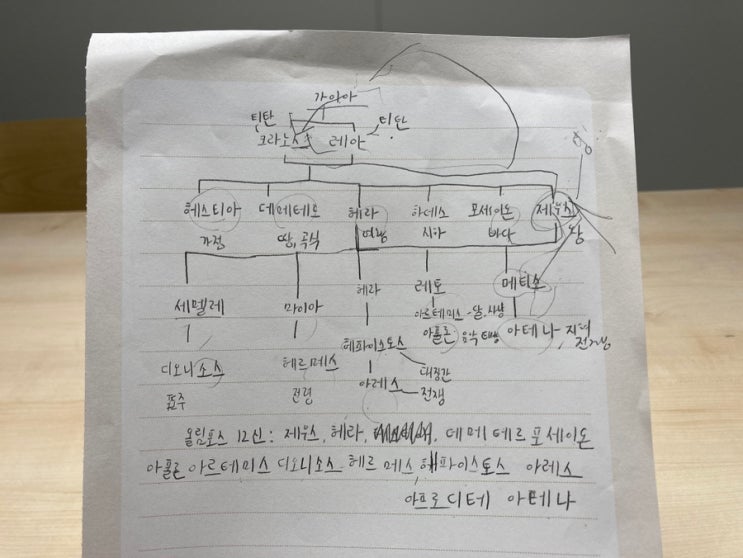 가이아
티탄 티탄
크라노스 레아
헤스티아 데메테르 헤라 하데스 포세이돈 제우스
가정 땅, 곡식 여왕 지하 바다 왕
세멜레 마이아 헤라 레토 메티스
아르테미스 - 달. 사냥
헤파이스토스 아폴론 음악 태양 아테나, 지혜
전쟁
디오니소스 헤르메스 대장간
포주 전령 아레스 전쟁
올림포스 12신: 제우스, 헤라, 데메테르 포세이돈
아폴론 아르테미스 디오니소스 헤르메스 헤파이스토스 아레스
아프로디테 아테나